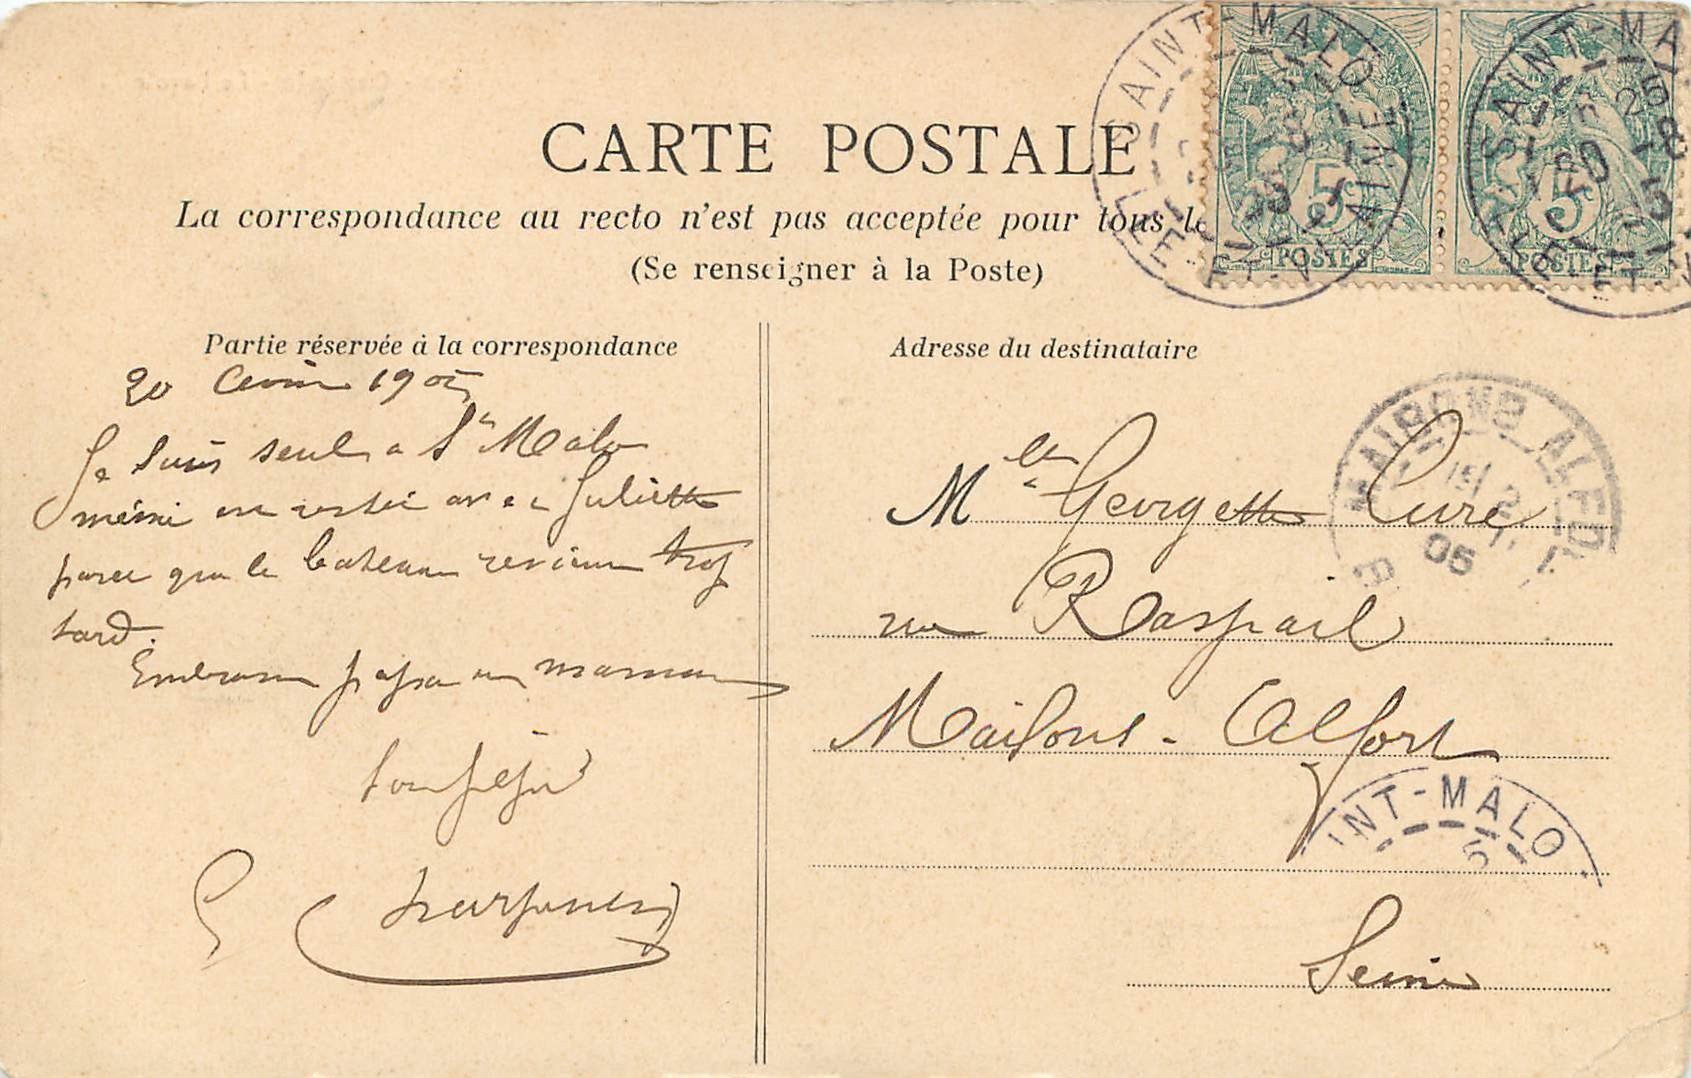 CARTE POSTALE
La correspondance au recto n'est pas acceptée pour tous le
(Se renseigner à la Poste)
SAINT-MALO
ILLE-ET-VILAINE
5
POSTES
SAINT-MA
5
POSTES
Partie réservée à la correspondance
20 1905
Je suis seul a St Malo
avec Juliette
parce que le bateau revient trop
tard.
Embrasse papa maman
ton
Adresse du destinataire
Mlle Georgette Curé
rue Raspail
Maisons-Alfort
Seine
MAISONS ALFO
05
INT-MALO